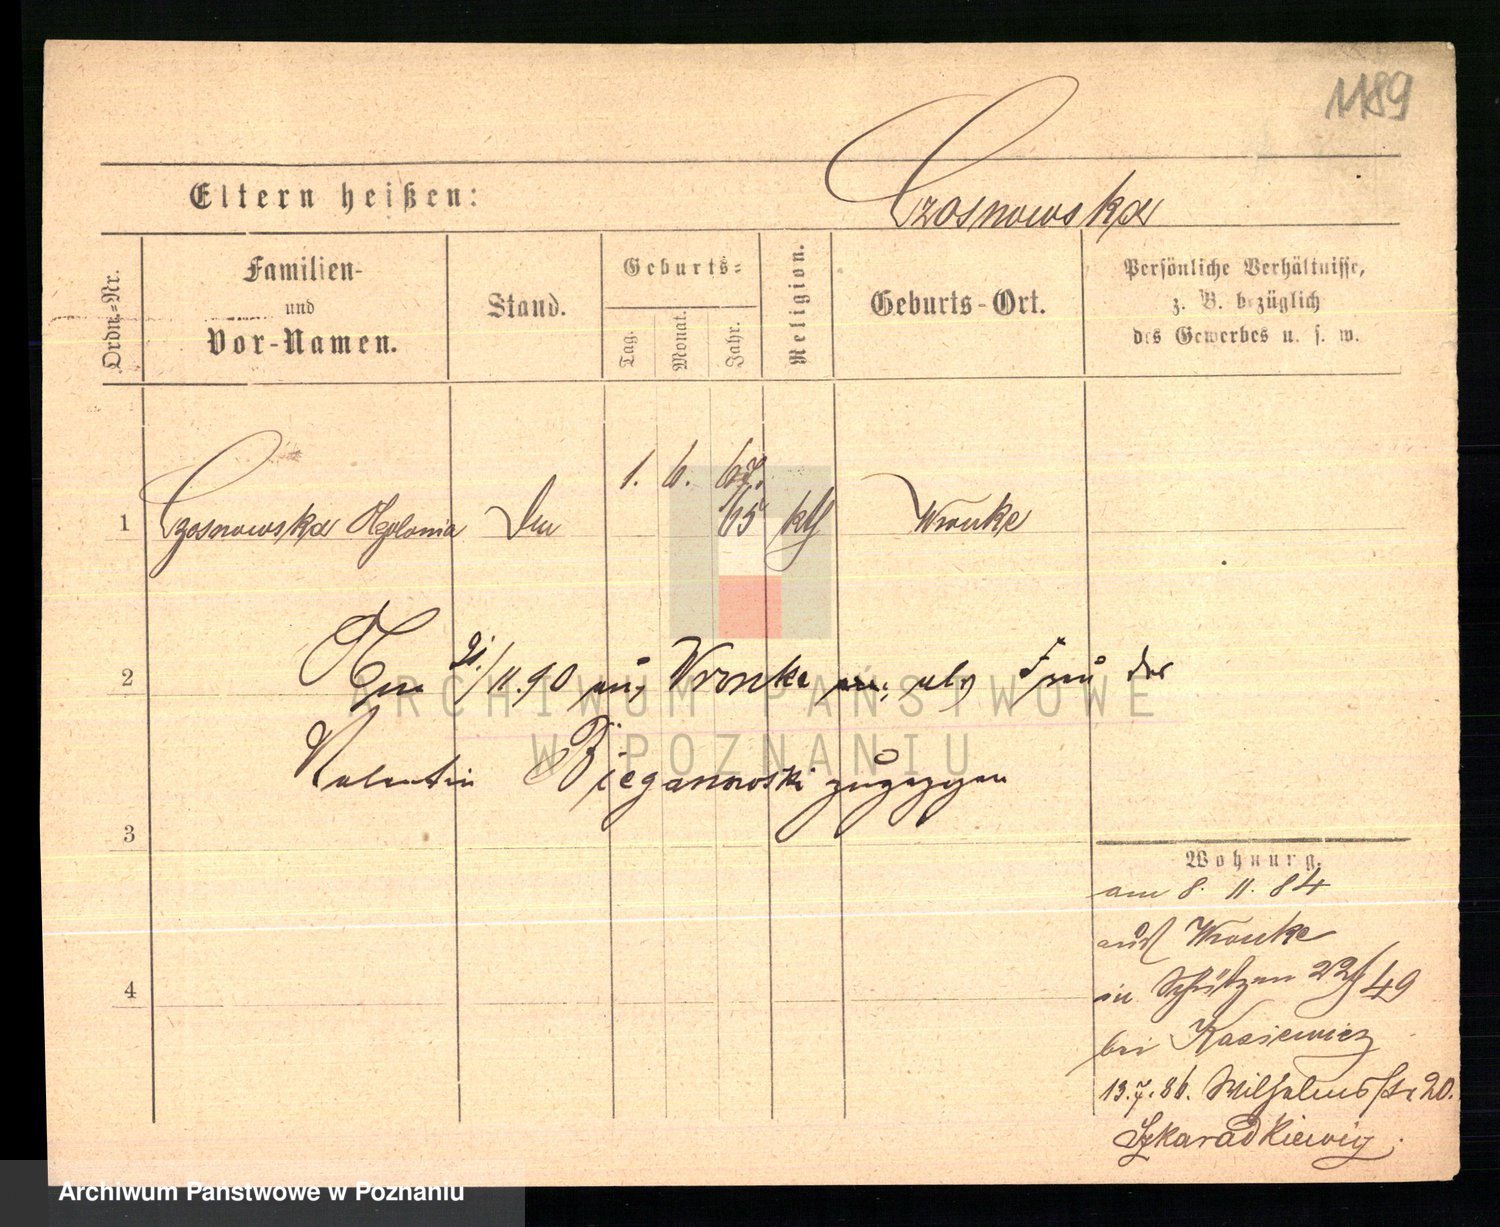 1189
Eltern heißen: Czosnowska
Ordn.-Nr.
Familien-
und
Vor-Namen.
Stand.
Geburts-
Tag.
Monat.
Jahr.
Religion.
Geburts-Ort.
Persönliche Verhältnisse,
z. B. bezüglich
des Gewerbes u. s. w.
1. 6. 67.
1 Czosnowska Apolonia 65 kth Wronke
2
Am 21/11.90 aus Wronke als Frau des
Valentin Bieganowski zugezogen
3
4
Wohnung.
am 8. 11. 84
aus Wronke
in Schützen 22/49
bei Kasiewicz
13.7.86. Wilhelmsstr 20.
Szkaradkiewicz.
ARCHIWUM PAŃSTWOWE
W POZNANIU
Archiwum Państwowe w Poznaniu